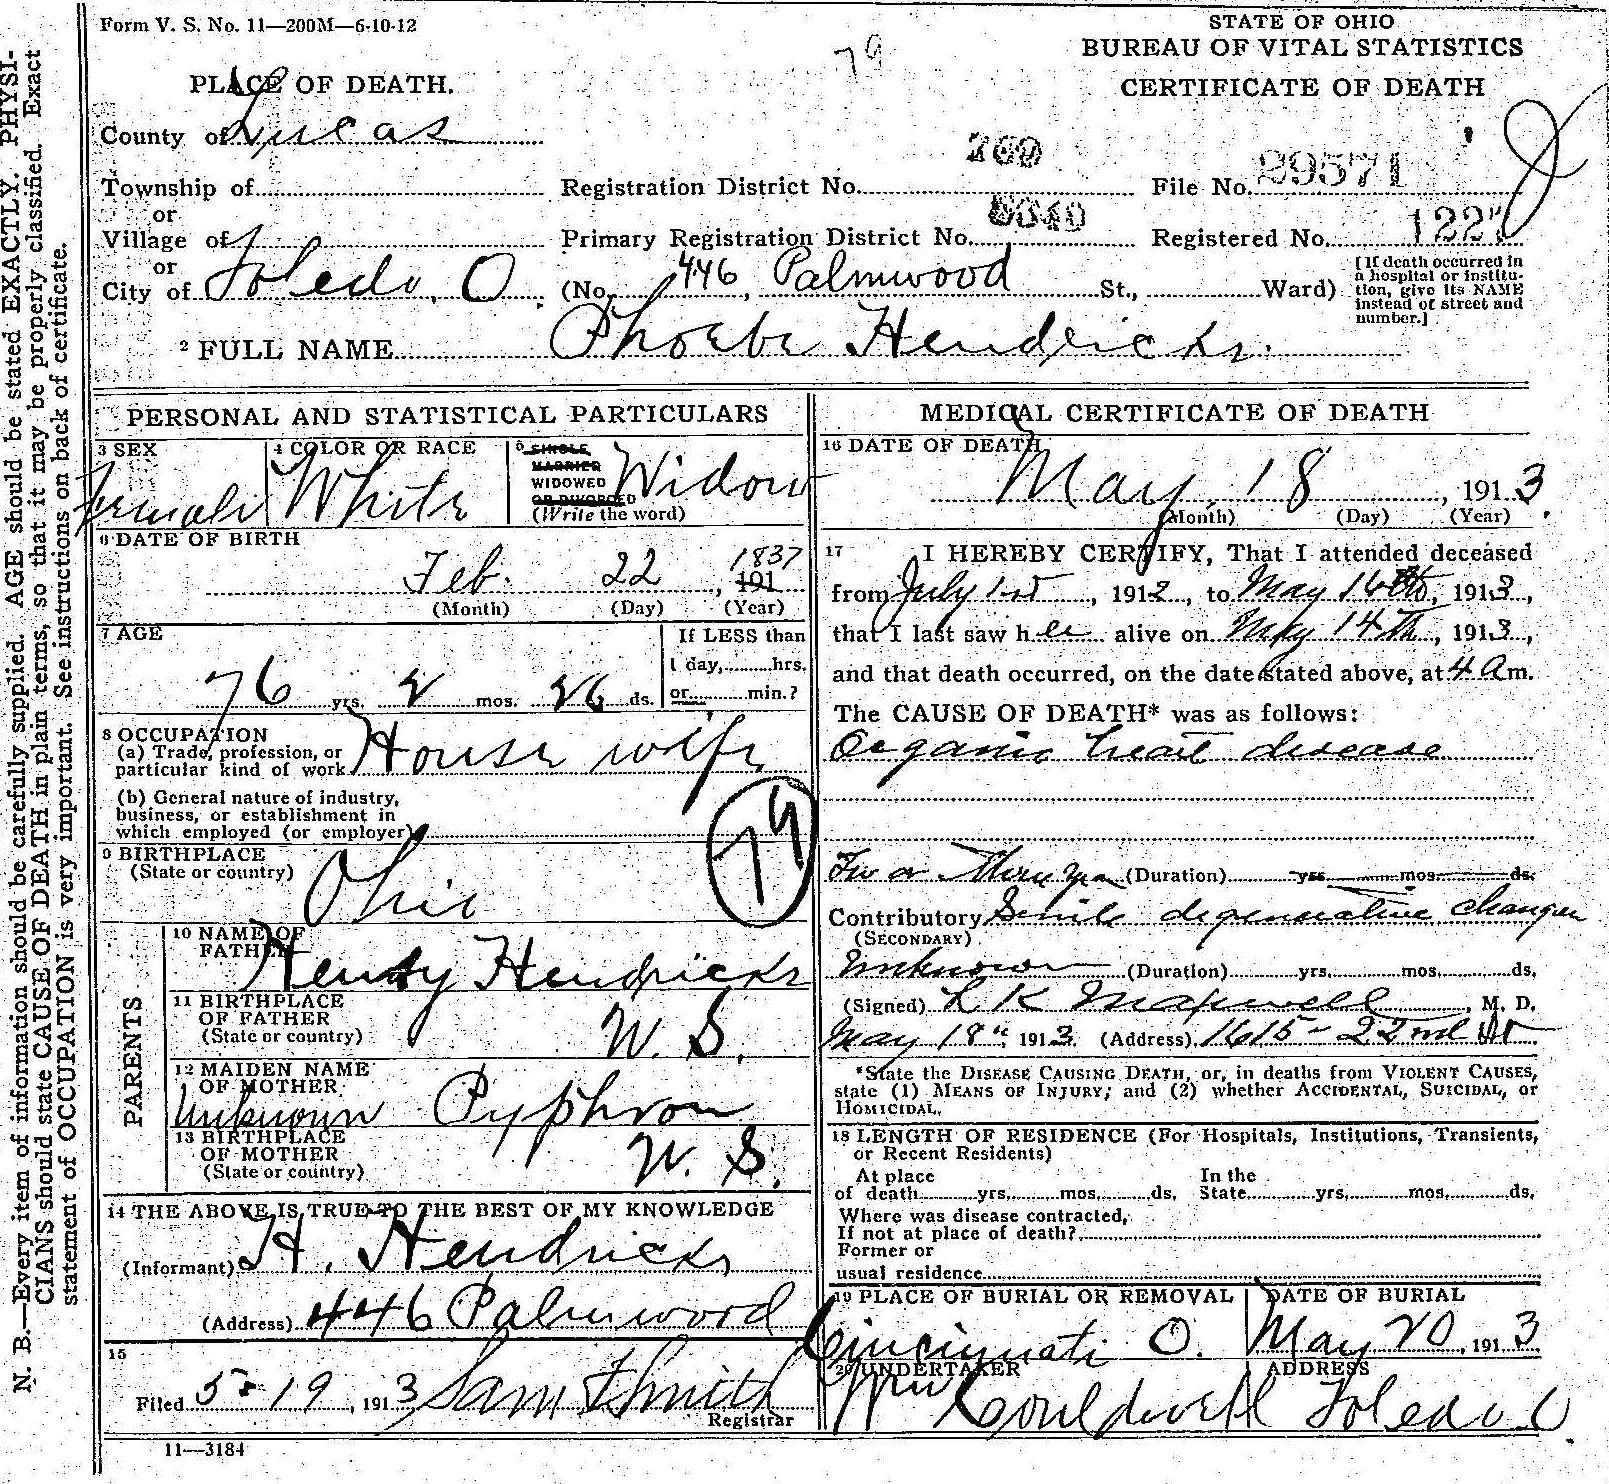 Form V. S. No. 11—200M—6-10-12
79
STATE OF OHIO
BUREAU OF VITAL STATISTICS
CERTIFICATE OF DEATH
PLACE OF DEATH.
County of Lucas
Township of
or
Village of
or
City of Toledo, O.
Registration District No. 769
File No. 29571
Primary Registration District No.
Registered No.
(No. 446, Palmwood St., Ward)
[If death occurred in
a hospital or institu-
tion, give its NAME
instead of street and
number.]
2 FULL NAME Phoebe Hendricks.
PERSONAL AND STATISTICAL PARTICULARS
3 SEX
Female
4 COLOR OR RACE
White
5 SINGLE
MARRIED
WIDOWED
OR DIVORCED
(Write the word)
Widow
6 DATE OF BIRTH
Feb. 22, 191 1837
(Month) (Day) (Year)
7 AGE
76 yrs. 2 mos. 26 ds.
If LESS than
1 day, hrs.
or min.?
8 OCCUPATION
(a) Trade, profession, or
particular kind of work House wife
(b) General nature of industry,
business, or establishment in
which employed (or employer)
79
9 BIRTHPLACE
(State or country)
Ohio
PARENTS
10 NAME OF
FATHER
Henry Hendricks
11 BIRTHPLACE
OF FATHER
(State or country)
W. S.
12 MAIDEN NAME
OF MOTHER
Unknown Pyphron
13 BIRTHPLACE
OF MOTHER
(State or country)
W. S.
14 THE ABOVE IS TRUE TO THE BEST OF MY KNOWLEDGE
(Informant) H. Hendricks
(Address) 446 Palmwood
15
Filed 5-19, 1913 Sam Smith
Registrar
11—3184
MEDICAL CERTIFICATE OF DEATH
16 DATE OF DEATH
May, 18, 1913.
(Month) (Day) (Year)
17 I HEREBY CERTIFY, That I attended deceased
from July 1st, 1912, to May 16th, 1913,
that I last saw her alive on May 14th, 1913,
and that death occurred, on the date stated above, at 4 a m.
The CAUSE OF DEATH* was as follows:
Organic heart disease
(Duration) yrs. mos. ds.
Contributory Senile degenerative changes
(SECONDARY)
Unknown (Duration) yrs. mos. ds.
(Signed) L K Maxwell, M. D.
May 18", 1913 (Address) 1615-22nd St
*State the DISEASE CAUSING DEATH, or, in deaths from VIOLENT CAUSES,
state (1) MEANS OF INJURY; and (2) whether ACCIDENTAL, SUICIDAL, or
HOMICIDAL.
18 LENGTH OF RESIDENCE (For Hospitals, Institutions, Transients,
or Recent Residents)
At place
of death yrs. mos. ds.
In the
State yrs. mos. ds.
Where was disease contracted,
If not at place of death?
Former or
usual residence
19 PLACE OF BURIAL OR REMOVAL
Cincinnati O.
DATE OF BURIAL
May 20, 1913
20 UNDERTAKER
Wm Couldwell
ADDRESS
Toledo O
N. B.—Every item of information should be carefully supplied. AGE should be stated EXACTLY. PHYSI-
CIANS should state CAUSE OF DEATH in plain terms, so that it may be properly classified. Exact
statement of OCCUPATION is very important. See instructions on back of certificate.